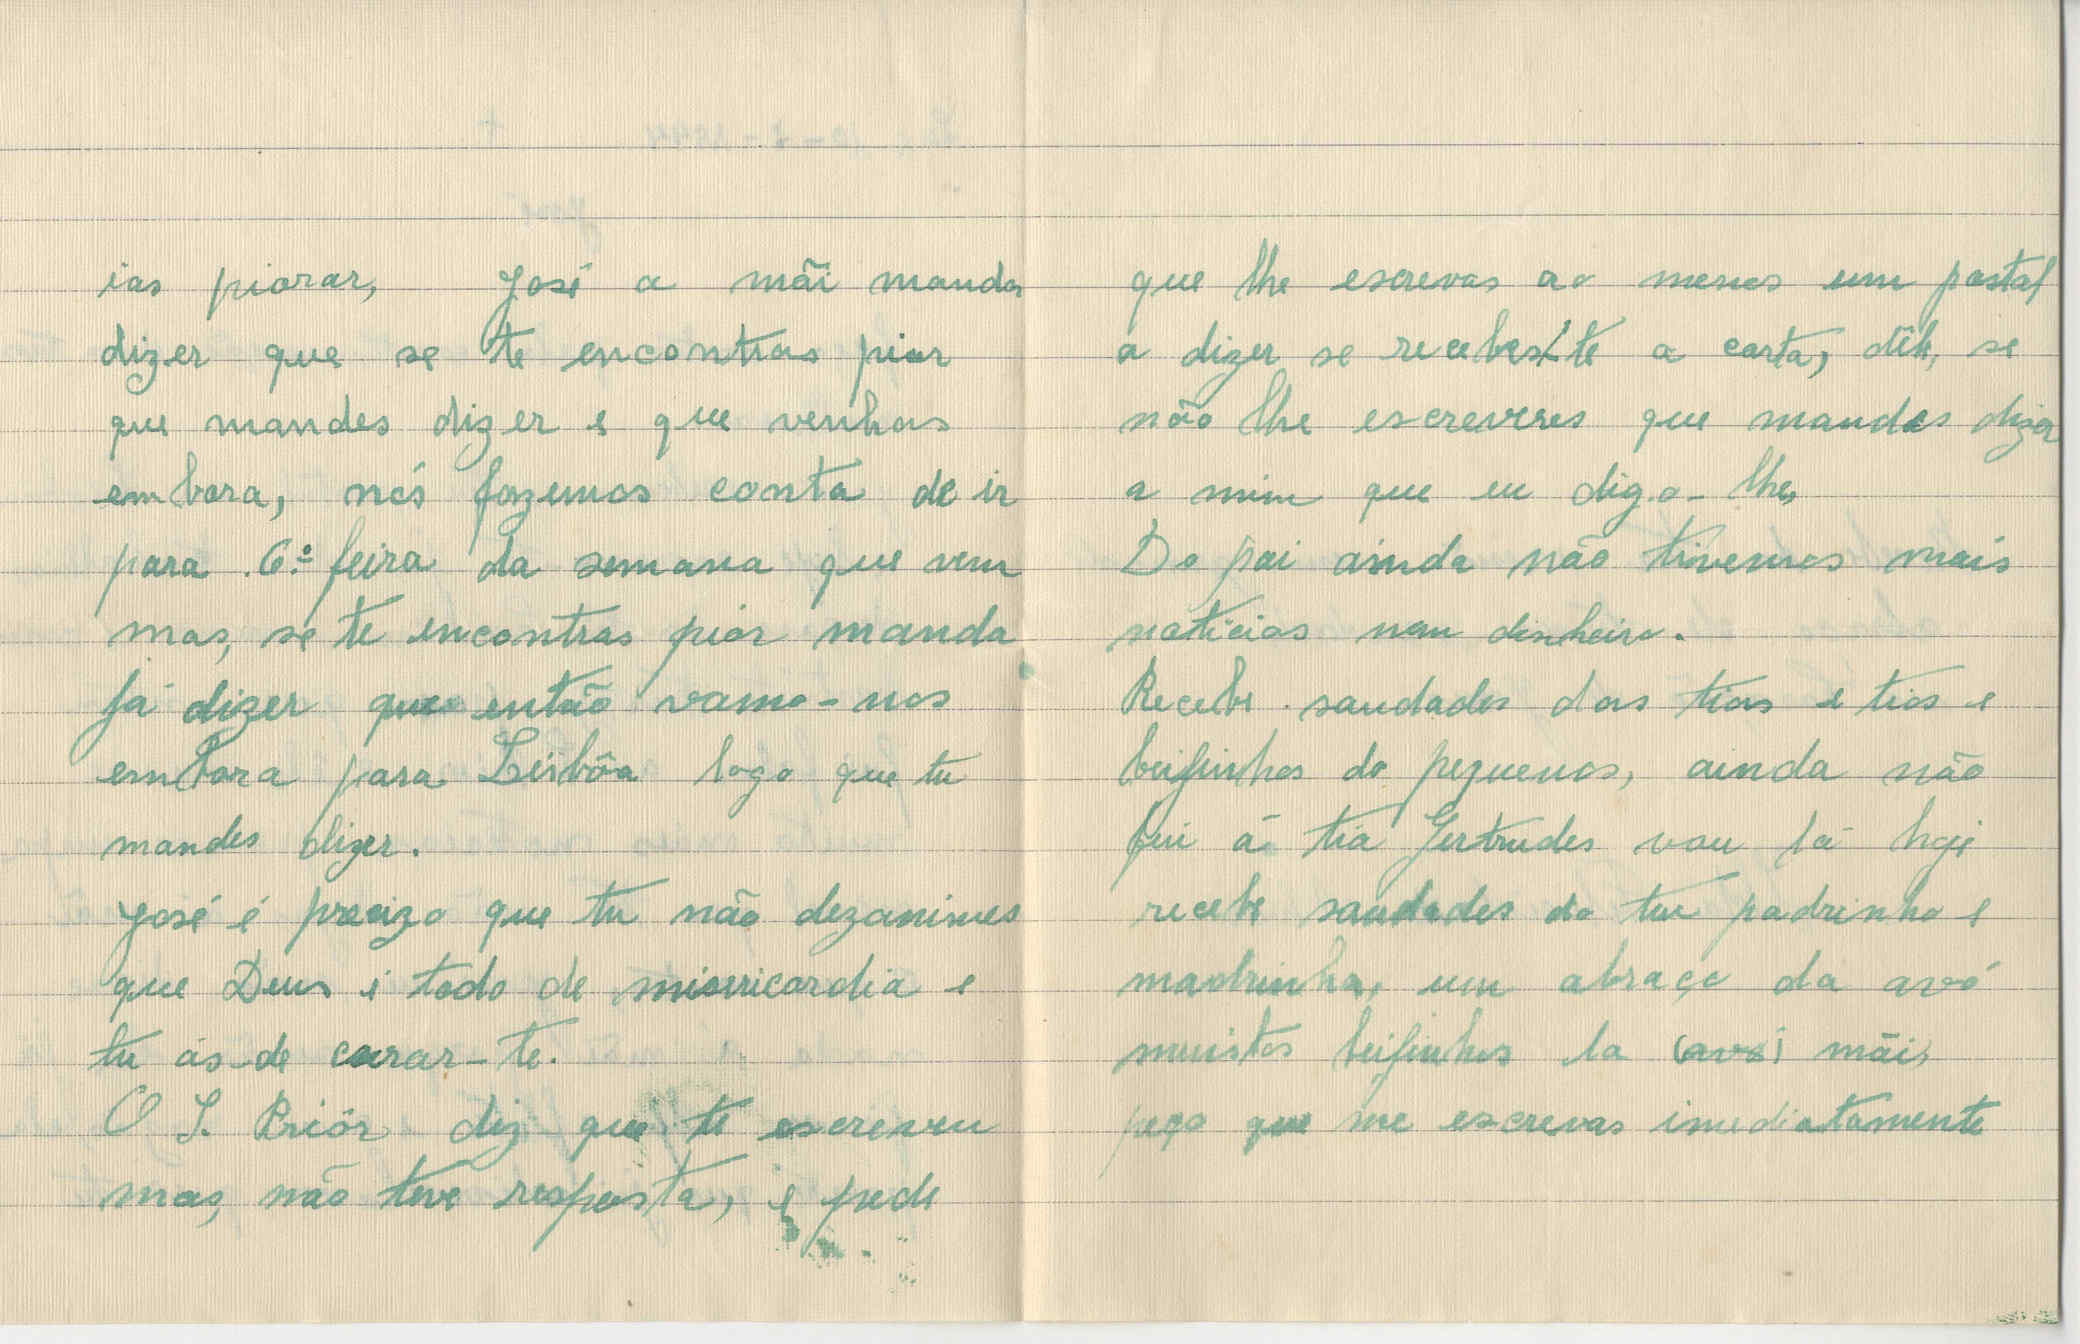 ias piorar, José a mãi manda
dizer que se te encontras pior
que mandes dizer e que venhas
embora, nós fazemos conta de ir
para 6.º feira da semana que vem
mas, se te encontras piór manda
já dizer que então vamo-nos
embora para Lisbôa logo que tu
mandes dizer.
José é precizo que tu não dezanimes
que Deus é todo de misericordia e
tu ás-de curar-te.
O S. Priôr diz que te escreveu
mas, não teve resposta, e pede
que lhe escrevas ao menos um postal
a dizer se recebeste a carta, se
não lhe escreveres que mandes dizer
a mim que eu digo-lhe,
Do pai ainda não tivemos mais
noticias nem dinheiro.
Recebe saudades das tias e tios e
beijinhos do pequenos, ainda não
fui á tia Gertrudes vou lá hoje
recebe saudades do teu padrinho e
madrinha, um abraço da avó
muistos beijinhos da (avó) mãi,
peço que me escrevas imediatamente